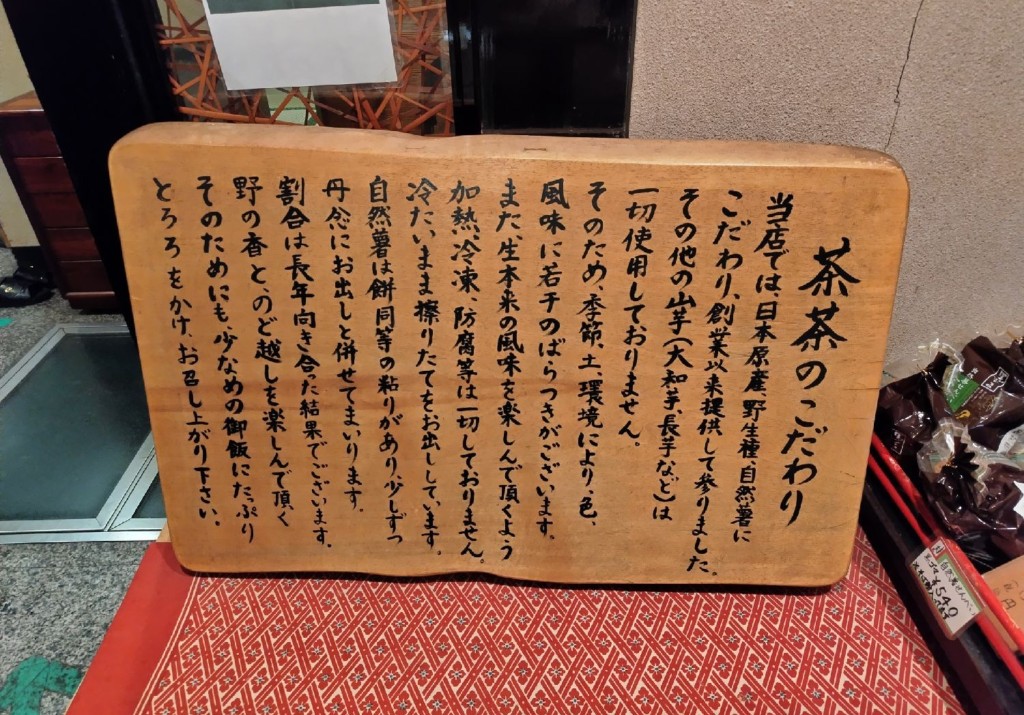 茶茶のこだわり
当店では、日本原産、野生種、自然薯に
こだわり、創業以来提供して参りました。
その他の山芋(大和芋、長芋など)は
一切使用しておりません。
そのため、季節、土、環境により、色、
風味に若干のばらつきがございます。
また、生本来の風味を楽しんで頂くよう
加熱、冷凍、防腐等は一切しておりません。
冷たいまま擦りたてをお出ししています。
自然薯は餅同等の粘りがあり、少しずつ
丹念にお出しと併せてまいります。
割合は長年向き合った結果でございます。
野の香と、のど越しを楽しんで頂く
そのためにも、少なめの御飯にたっぷり
とろろをかけ、お召し上がり下さい。
¥540